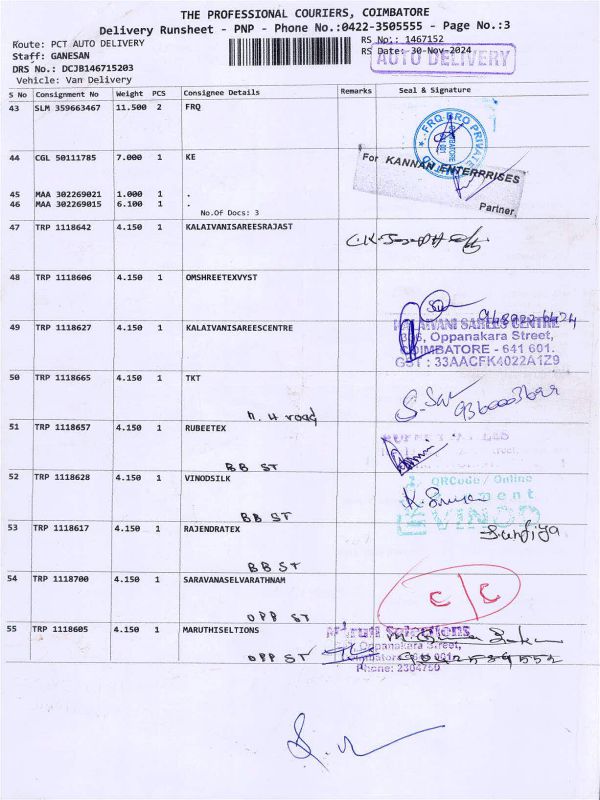 THE PROFESSIONAL COURIERS, COIMBATORE
Delivery Runsheet - PNP - Phone No.:0422-3505555 - Page No.:3
Route: PCT AUTO DELIVERY
RS No.: 1467152
Staff: GANESAN
RS Date: 30-Nov-2024
AUTO DELIVERY
DRS No.: DCJB146715203
Vehicle: Van Delivery
S No Consignment No Weight PCS Consignee Details Remarks Seal & Signature
43 SLM 359663467 11.500 2 FRQ
FRQ PRO PRIVATE
44 CGL 50111785 7.000 1 KE
For KANNAN ENTERPRISES
45 MAA 302269021 1.000 1 .
46 MAA 302269015 6.100 1 .
Partner.
No.Of Docs: 3
47 TRP 1118642 4.150 1 KALAIVANISAREESRAJAST
48 TRP 1118606 4.150 1 OMSHREETEXVYST
49 TRP 1118627 4.150 1 KALAIVANISAREESCENTRE
KALAIVANI SAREES CENTRE
306, Oppanakara Street,
COIMBATORE - 641 601.
GST : 33AACFK4022A1Z9
50 TRP 1118665 4.150 1 TKT
n. H road
51 TRP 1118657 4.150 1 RUBEETEX
BB ST
52 TRP 1118628 4.150 1 VINODSILK
QRCode / Online
BB ST
VINOD
53 TRP 1118617 4.150 1 RAJENDRATEX
BB ST
54 TRP 1118700 4.150 1 SARAVANASELVARATHNAM
C / C
OPP ST
55 TRP 1118605 4.150 1 MARUTHISELTIONS
Maruti Selections
Oppanakara Street,
OPP ST
Coimbatore 641 001.
Phone: 2304750